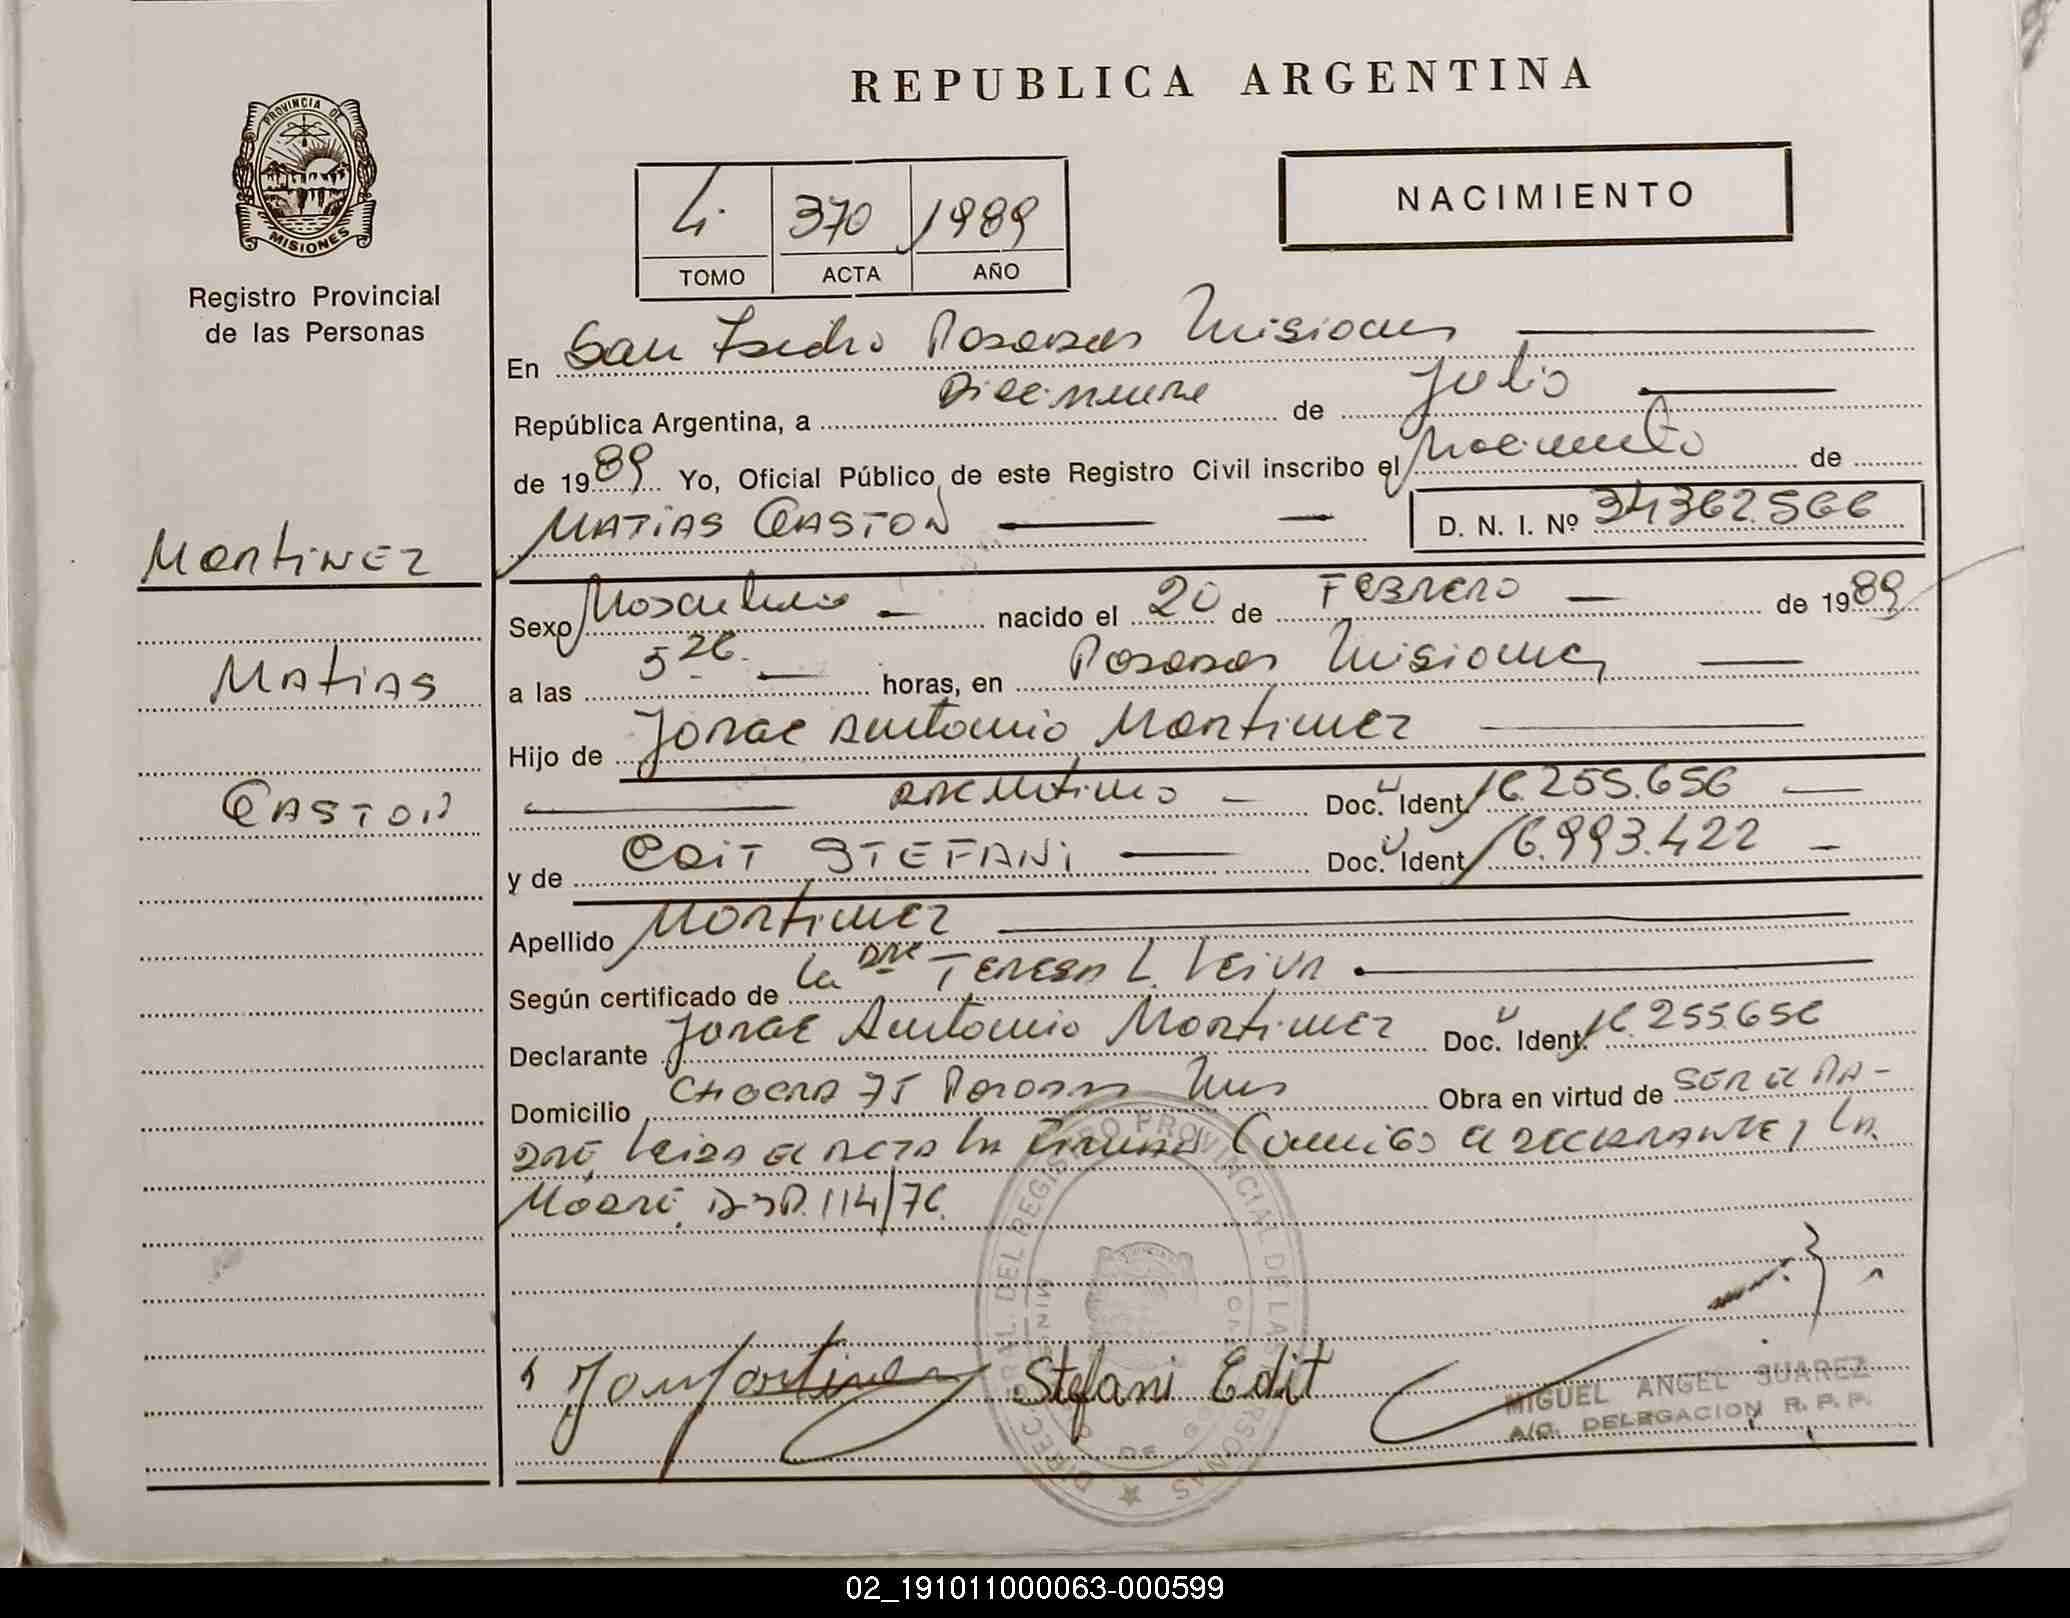 REPUBLICA ARGENTINA
PROVINCIA DE
MISIONES
Registro Provincial
de las Personas
NACIMIENTO
370 1989
TOMO ACTA AÑO
En San Isidro Posadas Misiones
República Argentina, a de Julio
de 1989 Yo, Oficial Público de este Registro Civil inscribo el Nacimiento de
MATIAS GASTON D. N. I. Nº 34362.566
Martinez
Sexo Masculino nacido el 20 de FEBRERO de 1989
Matias
a las 5 26 horas, en Posadas Misiones
Hijo de Jorge Antonio Martinez
GASTON
Argentino Doc. U Ident 16.255.656
y de EDIT STEFANI Doc. U Ident 16.993.422
Apellido Martinez
Según certificado de la DRA TERESA L. Leiva
Declarante Jorge Antonio Martinez Doc. U Ident. 16.255656
Domicilio CHACRA 75 Posadas Mnes Obra en virtud de SER el PA-
DRE, Leida el ACTA la Firman Conmigo el DECLARANTE y LA
MADRE. 114/76.
Stefani Edit
MIGUEL ANGEL SUAREZ
A/C. DELEGACION R. P. P.
02_191011000063-000599